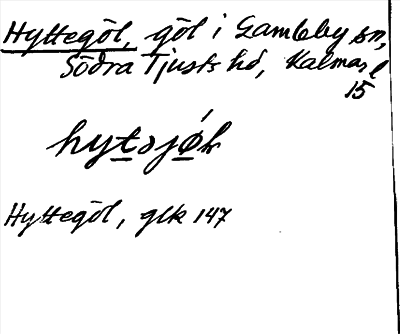 Hyttegöl, göl i Gamleby sn,
Södra Tjusts hd, Kalmar l
15
hytsjö́k
Hyttegöl, glk 147